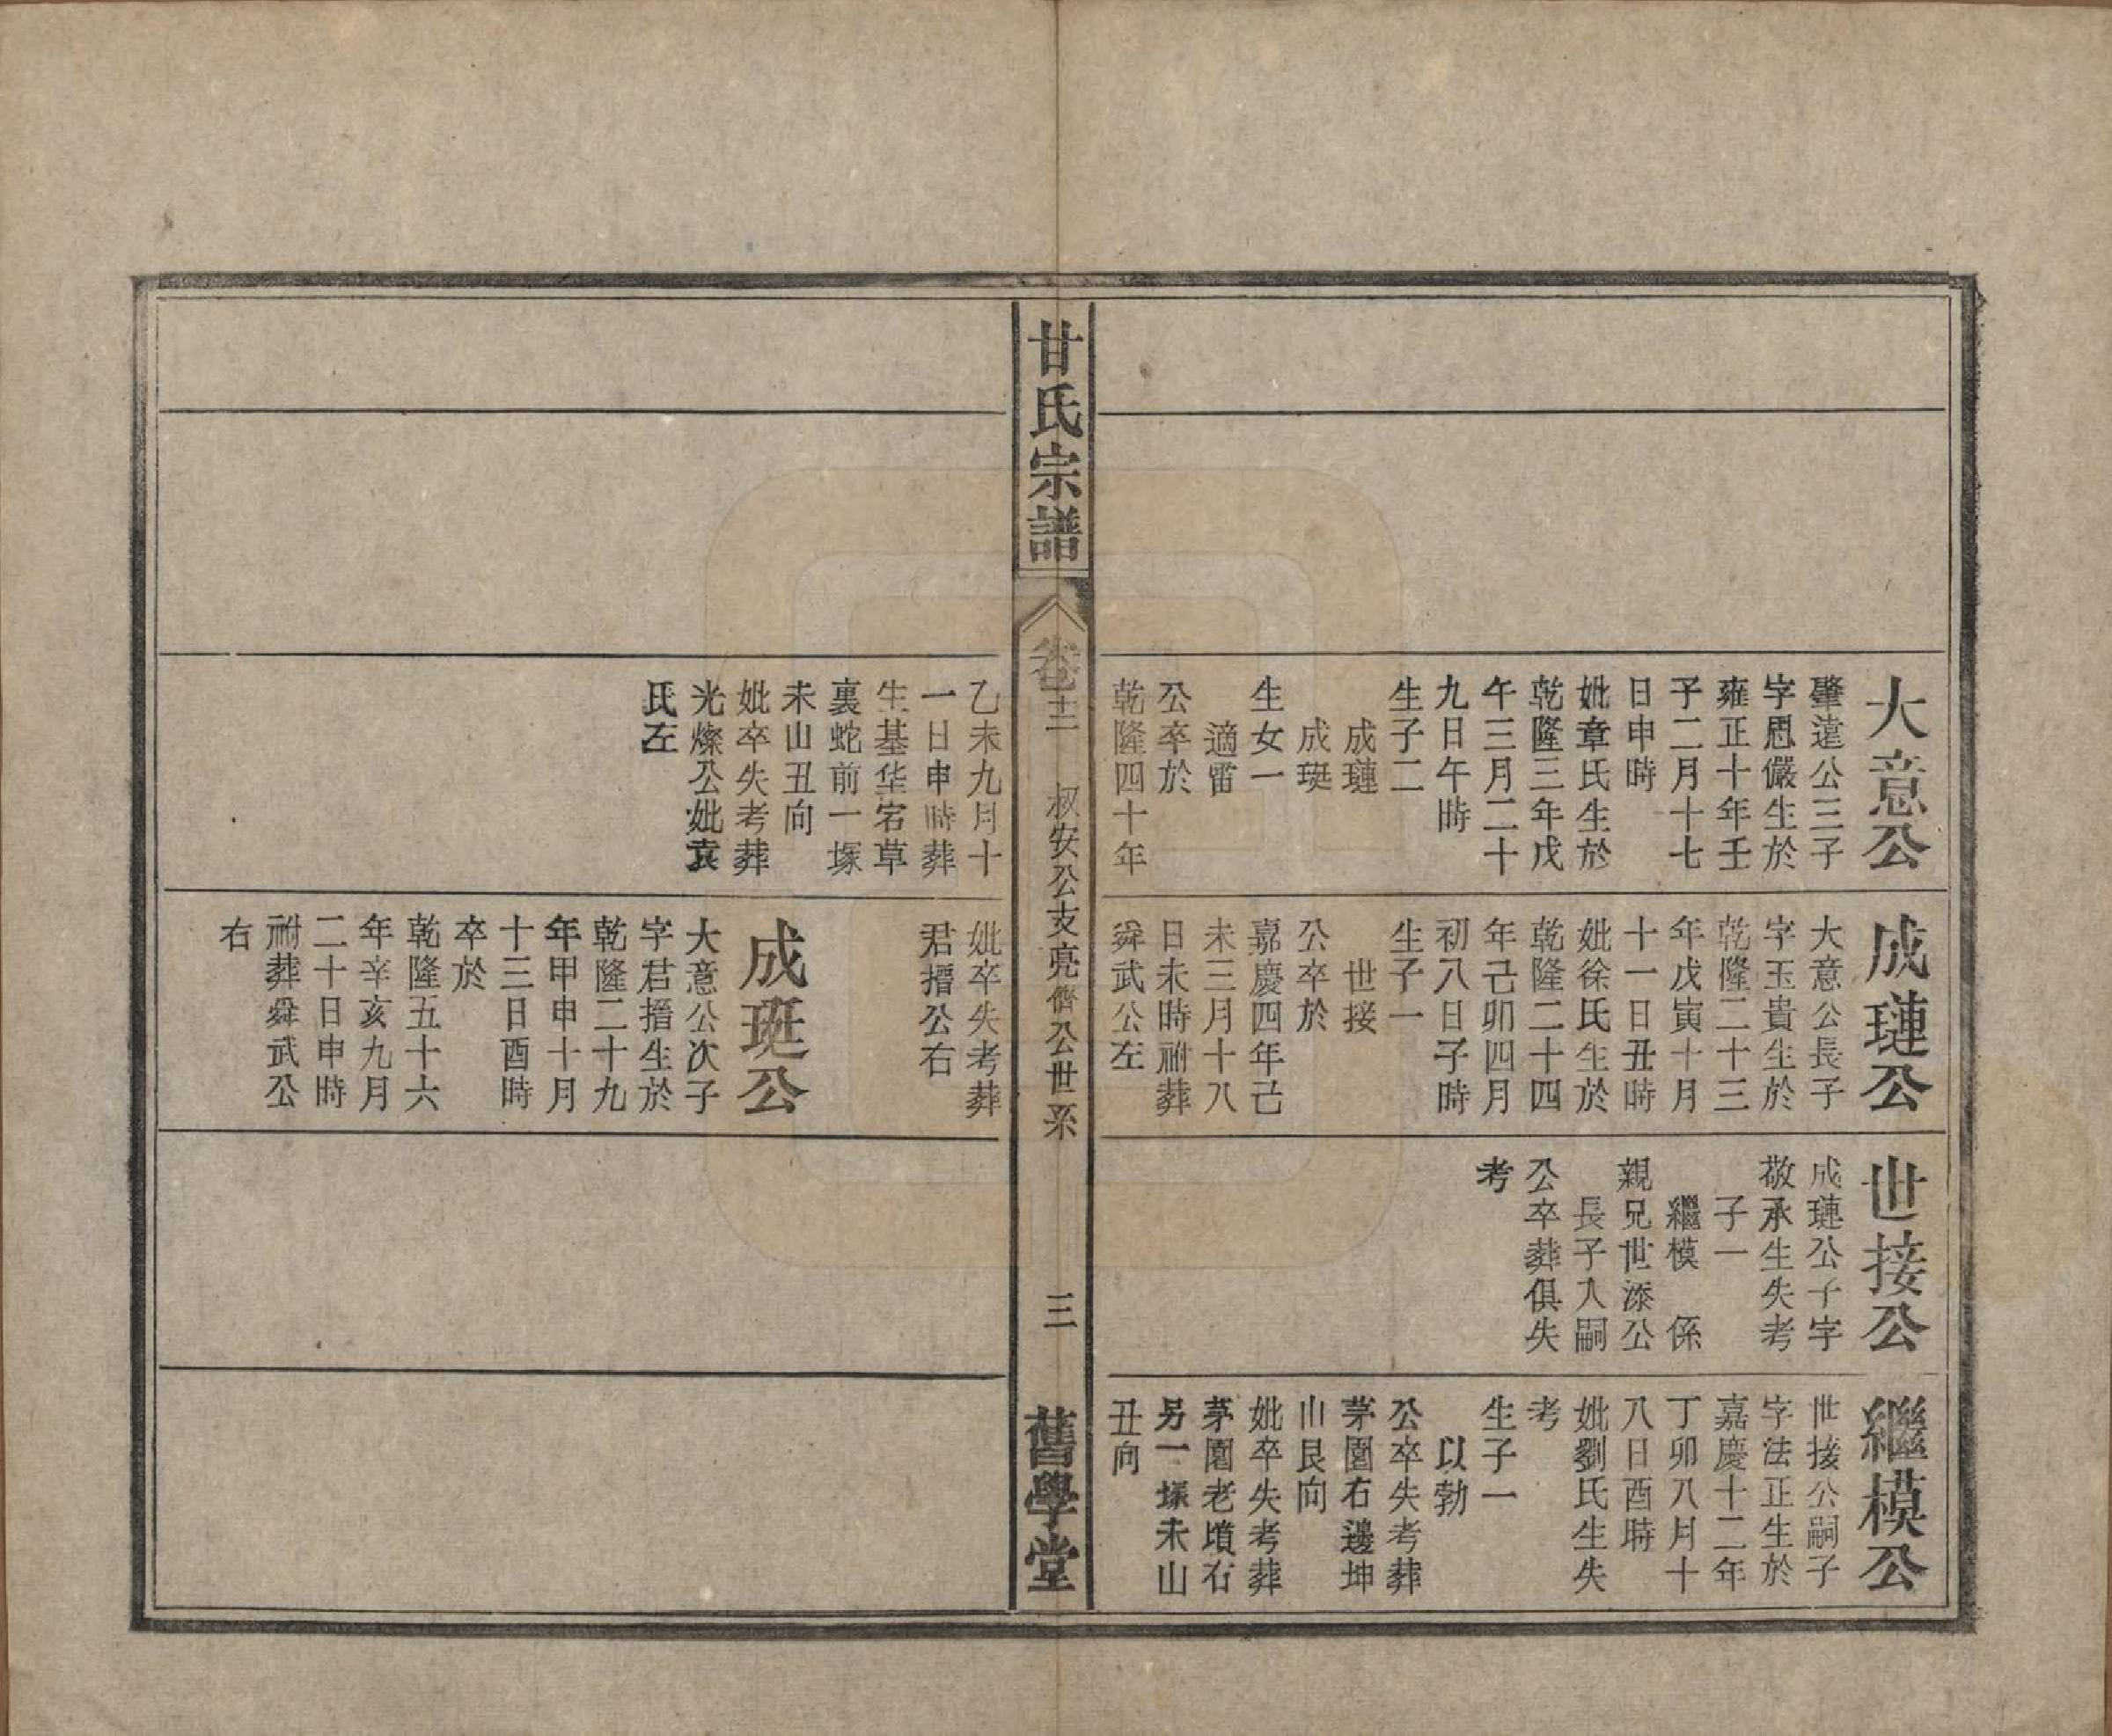 大意公
肇遠公三子
字思儼生於
雍正十年壬
子二月十七
日申時
妣章氏生於
乾隆三年戊
午三月二十
九日午時
生子二
成璉
成珽
生女一
適雷
公卒於
乾隆四十年
乙未九月十
一日申時葬
生基華宕草
裏蛇前一塚
未山丑向
妣卒失考葬
光燦公妣袁
氏左
成璉公
大意公長子
字玉貴生於
乾隆二十三
年戊寅十月
十一日丑時
妣徐氏生於
乾隆二十四
年己卯四月
初八日子時
生子一
世接
公卒於
嘉慶四年己
未三月十八
日未時祔葬
舜武公左
妣卒失考葬
君搢公右
成珽公
大意公次子
字君搢生於
乾隆二十九
年甲申十月
十三日酉時
卒於
乾隆五十六
年辛亥九月
二十日申時
祔葬舜武公
右
世接公
成璉公子字
敬承生失考
子一
繼模 係
親兄世添公
長子入嗣
公卒葬俱失
考
繼模公
世接公嗣子
字法正生於
嘉慶十二年
丁卯八月十
八日酉時
妣劉氏生失
考
生子一
以勃
公卒失考葬
茅園右邊坤
山艮向
妣卒失考葬
茅園老墳右
另一塚未山
丑向
甘氏宗譜
卷十二
叔安公支亮儕公世系
三
舊學堂